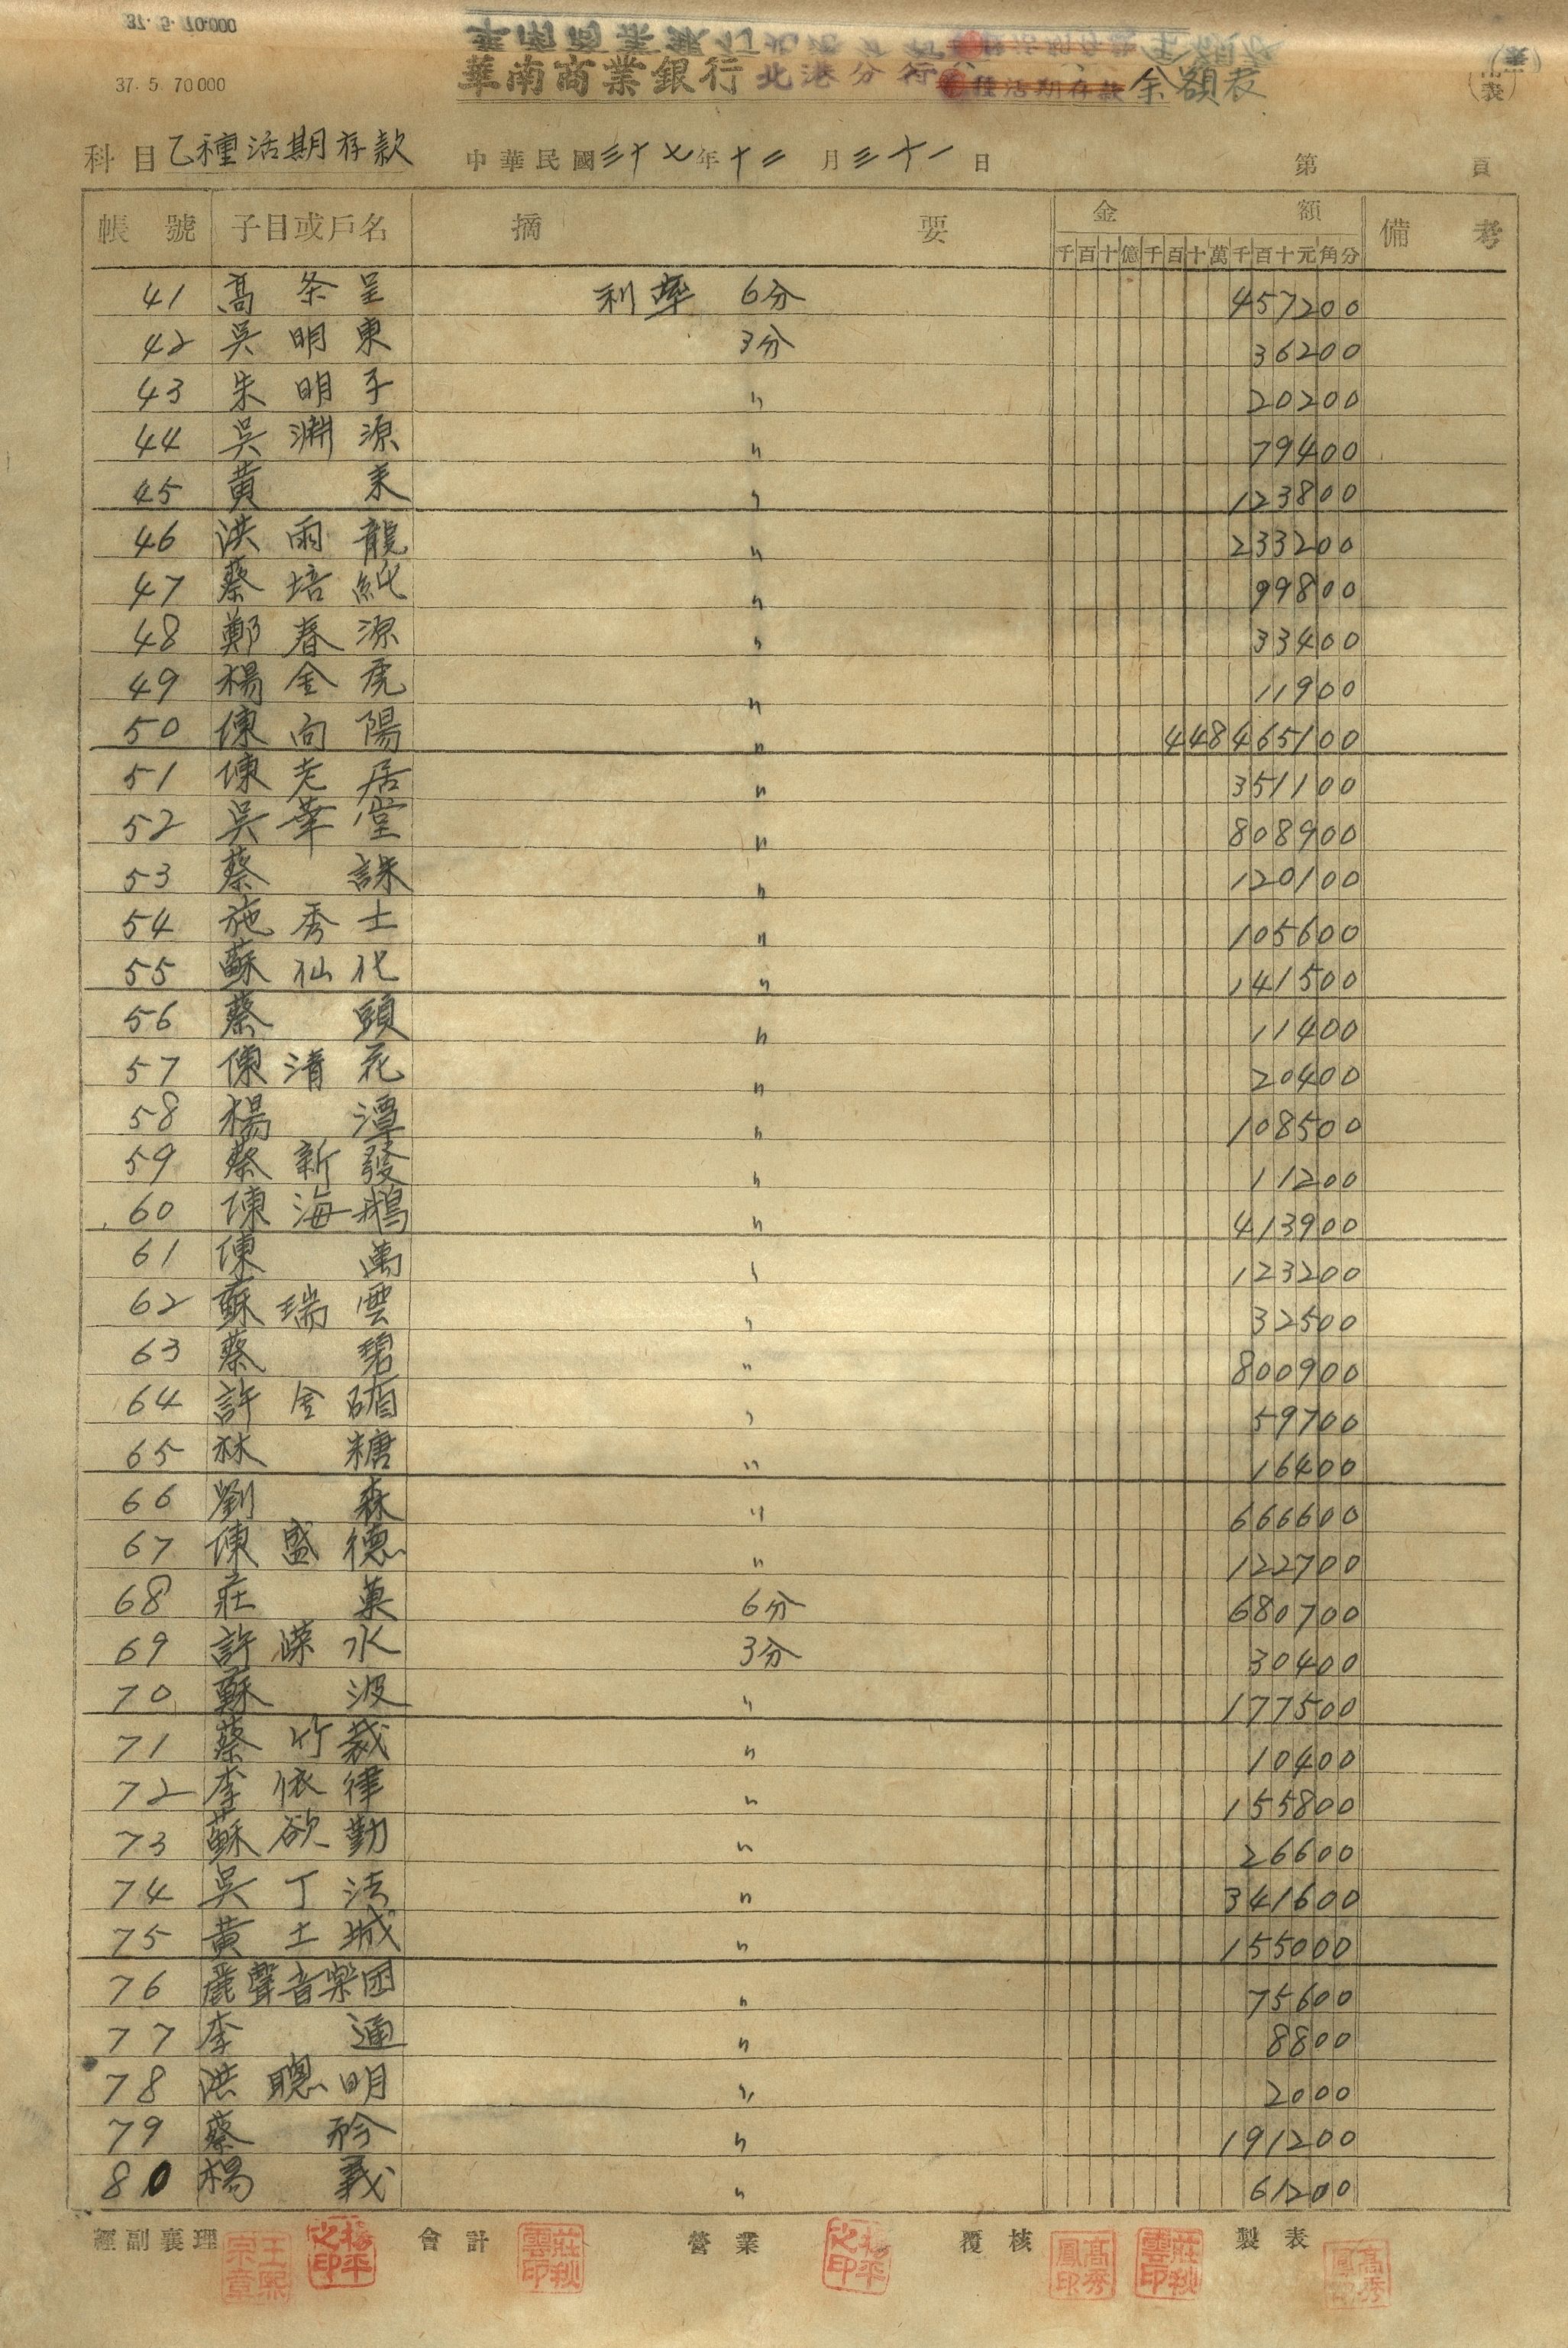 37. 5. 70.000
37. 5. 70000
華南商業銀行北港分行 種活期存款 余額表
(表)
科目 乙種活期存款 中華民國三十七年十二月三十一日 第 頁
帳號 子目或戶名 摘要 金額 備考
千百十億千百十萬千百十元角分
41 高条呈 利率 6分 457200
42 吳明東 3分 36200
43 朱明子 〃 20200
44 吳淵源 〃 79400
45 黃來 〃 123800
46 洪雨龍 〃 233200
47 蔡培純 〃 99800
48 鄭春源 〃 33400
49 楊金虎 〃 11900
50 陳向陽 〃 448465100
51 陳老居 〃 351100
52 吳華堂 〃 808900
53 蔡誅 〃 120100
54 施秀士 〃 105600
55 蘇仙化 〃 141500
56 蔡頭 〃 11400
57 陳清花 〃 20400
58 楊潭 〃 108500
59 蔡新發 〃 11200
60 陳海鵝 〃 413900
61 陳萬 〃 123200
62 蘇瑞雲 〃 32500
63 蔡碧 〃 800900
64 許金 〃 59700
65 林糖 〃 16400
66 劉森 〃 666600
67 陳盛德 〃 122700
68 莊菓 6分 680700
69 許嶸水 3分 30400
70 蘇波 〃 177500
71 蔡竹裁 〃 10400
72 李依律 〃 155800
73 蘇欲勤 〃 26600
74 吳丁法 〃 341600
75 黃土城 〃 155000
76 麗聲音樂团 〃 75600
77 李通 〃 8800
78 洪聰明 〃 2000
79 蔡 〃 191200
80 楊義 〃 61200
經副襄理 會計 營業 覆核 製表
王熙宗章 楊平之印 莊秋雲印 楊平之印 高秀鳳印 莊秋雲印 高秀鳳印